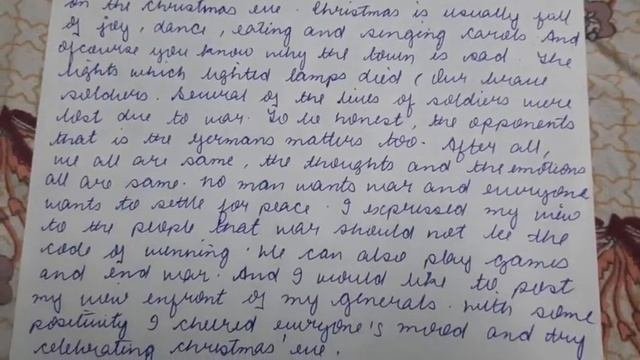 on the christmas eve. Christmas is usually full
of joy, dance, eating and singing carols. And
ofcourse you know why the town is sad. The
lights which lighted lamps died (Our brave
soldiers. Several of the lives of soldiers were
lost due to war. To be honest, the opponents
that is the Germans matters too. After all,
we all are same, the thoughts and the emotions
all are same. No man wants war and everyone
wants to settle for peace. I expressed my view
to the people that war should not be the
code of winning. We can also play games
and end war. And I would like to post
my view enfront of my generals. With some
positivity I cheered everyone's mood and try
celebrating christmas' eve.